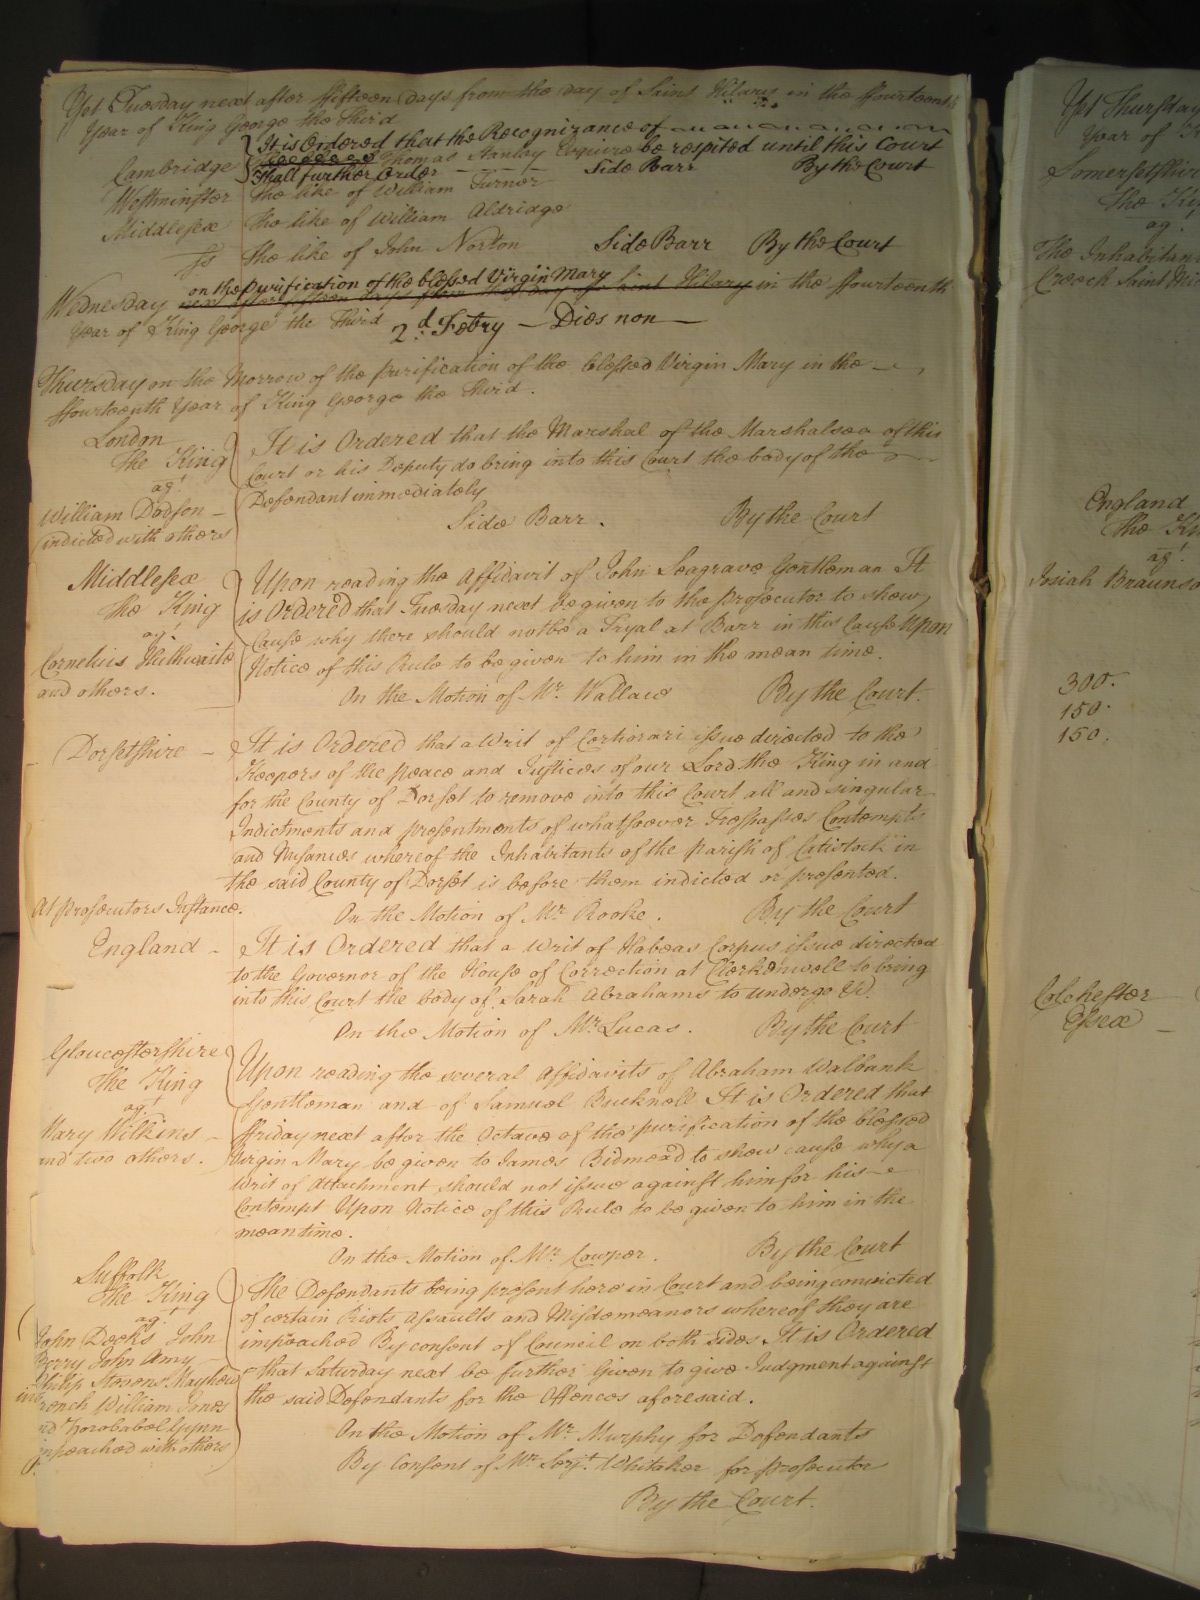 Yet Tuesday next after ffifteen days from the day of Saint Hilary in the ffourteenth
Year of King George the Third
It is Ordered that the Recognizance of
Cambridge Thomas Stanley Esquire be respited until this Court
shall further Order Side Barr By the Court
Westminster The like of William Turner
Middlesex The like of William Aldridge
ss The like of John Norton Side Barr By the Court
on the purification of the blessed Virgin Mary
Wednesday next after fifteen days from the day of Saint Hilary in the ffourteenth
Year of King George the Third 2d. Febry — Dies non —
Thursday on the Morrow of the purification of the blessed Virgin Mary in the
ffourteenth Year of King George the Third.
London
The King
agt
William Dodson
indicted with others
It is Ordered that the Marshal of the Marshalsea of this
Court or his Deputy do bring into this Court the body of the
Defendant immediately
Side Barr. By the Court
Middlesex
The King
agt
Cornelius
and others.
Upon reading the Affidavit of John Seagrave Gentleman It
is Ordered that Tuesday next be given to the prosecutor to show
Cause why there should not be a Tryal at Barr in this Cause Upon
Notice of this Rule to be given to him in the mean time.
On the Motion of Mr. Wallace By the Court.
Dorsetshire — It is Ordered that a Writ of Certiorari issue directed to the
Keepers of the peace and Justices of our Lord the King in and
for the County of Dorset to remove into this Court all and singular
Indictments and presentments of whatsoever Trespasses Contempts
and Nusances whereof the Inhabitants of the parish of Catistock in
the said County of Dorset is before them indicted or presented.
At prosecutors Instance. On the Motion of Mr. Rooke. By the Court
England — It is Ordered that a Writ of Habeas Corpus issue directed
to the Governor of the House of Correction at Clerkenwell to bring
into this Court the body of Sarah Abrahams to undergo &c.
On the Motion of Mr. Lucas. By the Court
Gloucestershire
The King
agt
Mary Wilkins
and two others.
Upon reading the several Affidavits of Abraham Walbank
Gentleman and of Samuel Bucknell It is Ordered that
ffriday next after the Octave of the purification of the blessed
Virgin Mary be given to James Bidmead to show cause why a
Writ of Attachment should not issue against him for his
Contempt Upon Notice of this Rule to be given to him in the
mean time.
On the Motion of Mr. Cowper. By the Court
Suffolk
The King
agt
John Deeks John
Berry John Amy
Philip Stevens Mayhew
William Jones
and Zorobabel Gynn
impeached with others
The Defendants being present here in Court and being convicted
of certain Riots Assaults and Misdemeanors whereof they are
impeached By consent of Council on both sides It is Ordered
that Saturday next be further Given to give Judgment against
the said Defendants for the Offences aforesaid.
On the Motion of Mr. Murphy for Defendants
By Consent of Mr. Serjt. Whitaker for prosecutor
By the Court.
Yet Thursday
Year of
Somersetshire
The
agt
The Inhabitants
Creech Saint
England
The
agt
Josiah
300.
150.
150.
Colchester
Essex —